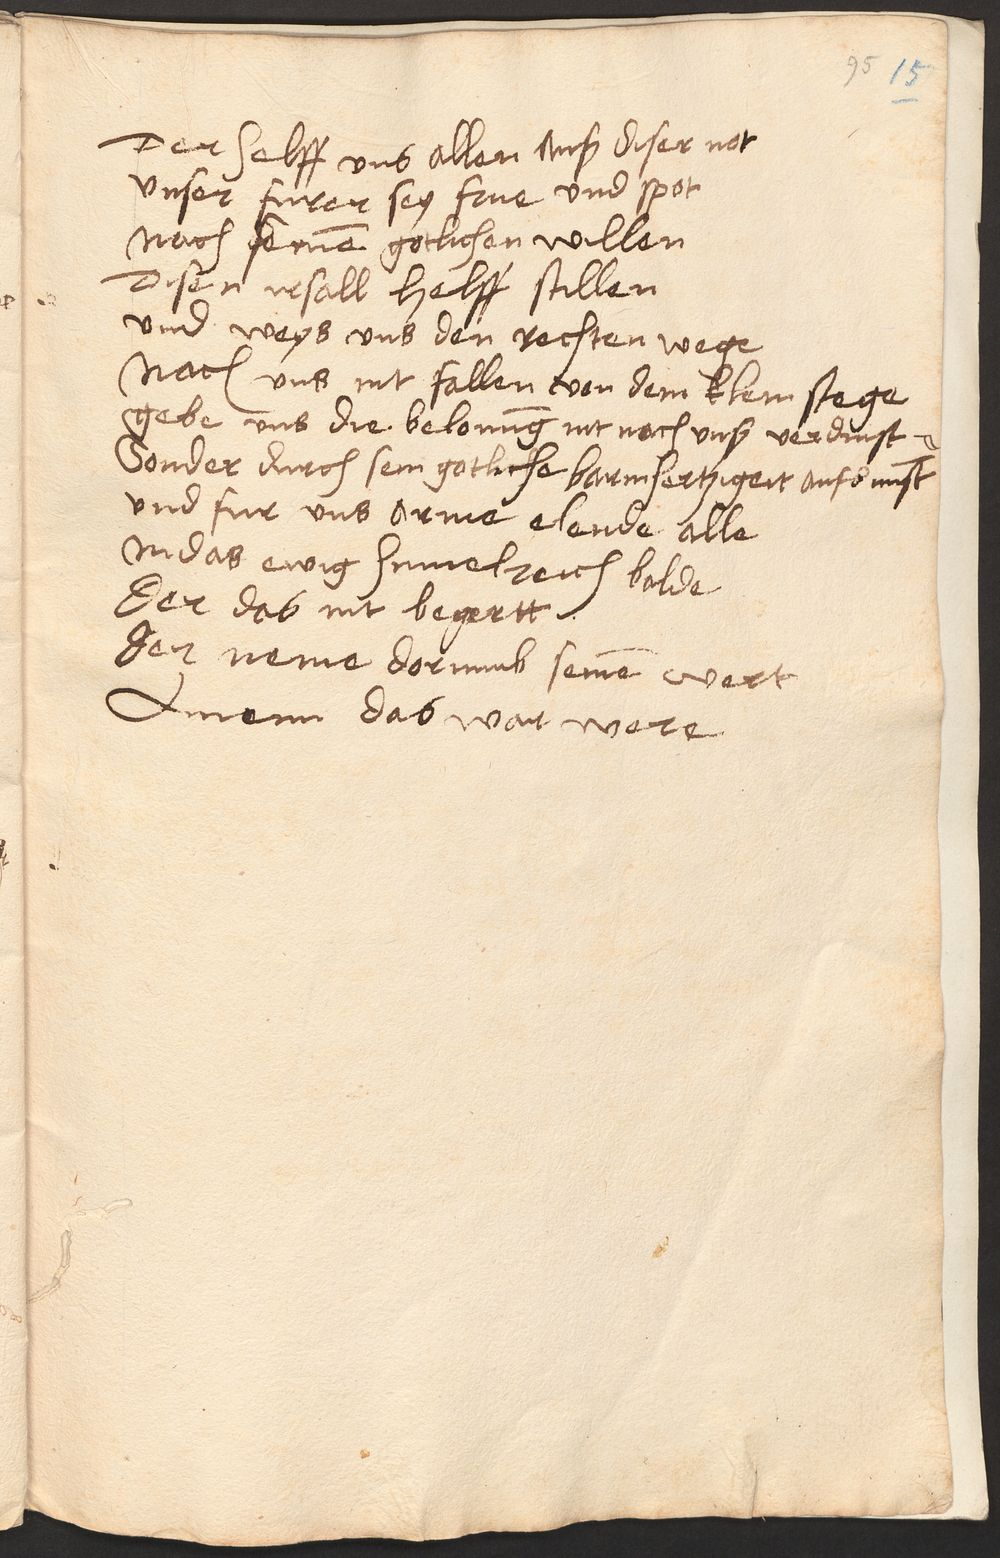 95 15
Der helff uns allen auß diser not
Unser furer sey frue und spot
Nach seine̅ gotlichen willen
Disen irsall helff stillen
und weys uns den rechten wege
Nach uns nit fallen von dem klein stege
gebe uns die belonu̅g nit nach unß verdinst
Sonder durch sein gotliche barmhertzigeit
und fur uns arme elende alle
in das ewig himelreich balde
Der das nit begertt
Der neme dorumb seine̅ wert
Amenn das war were